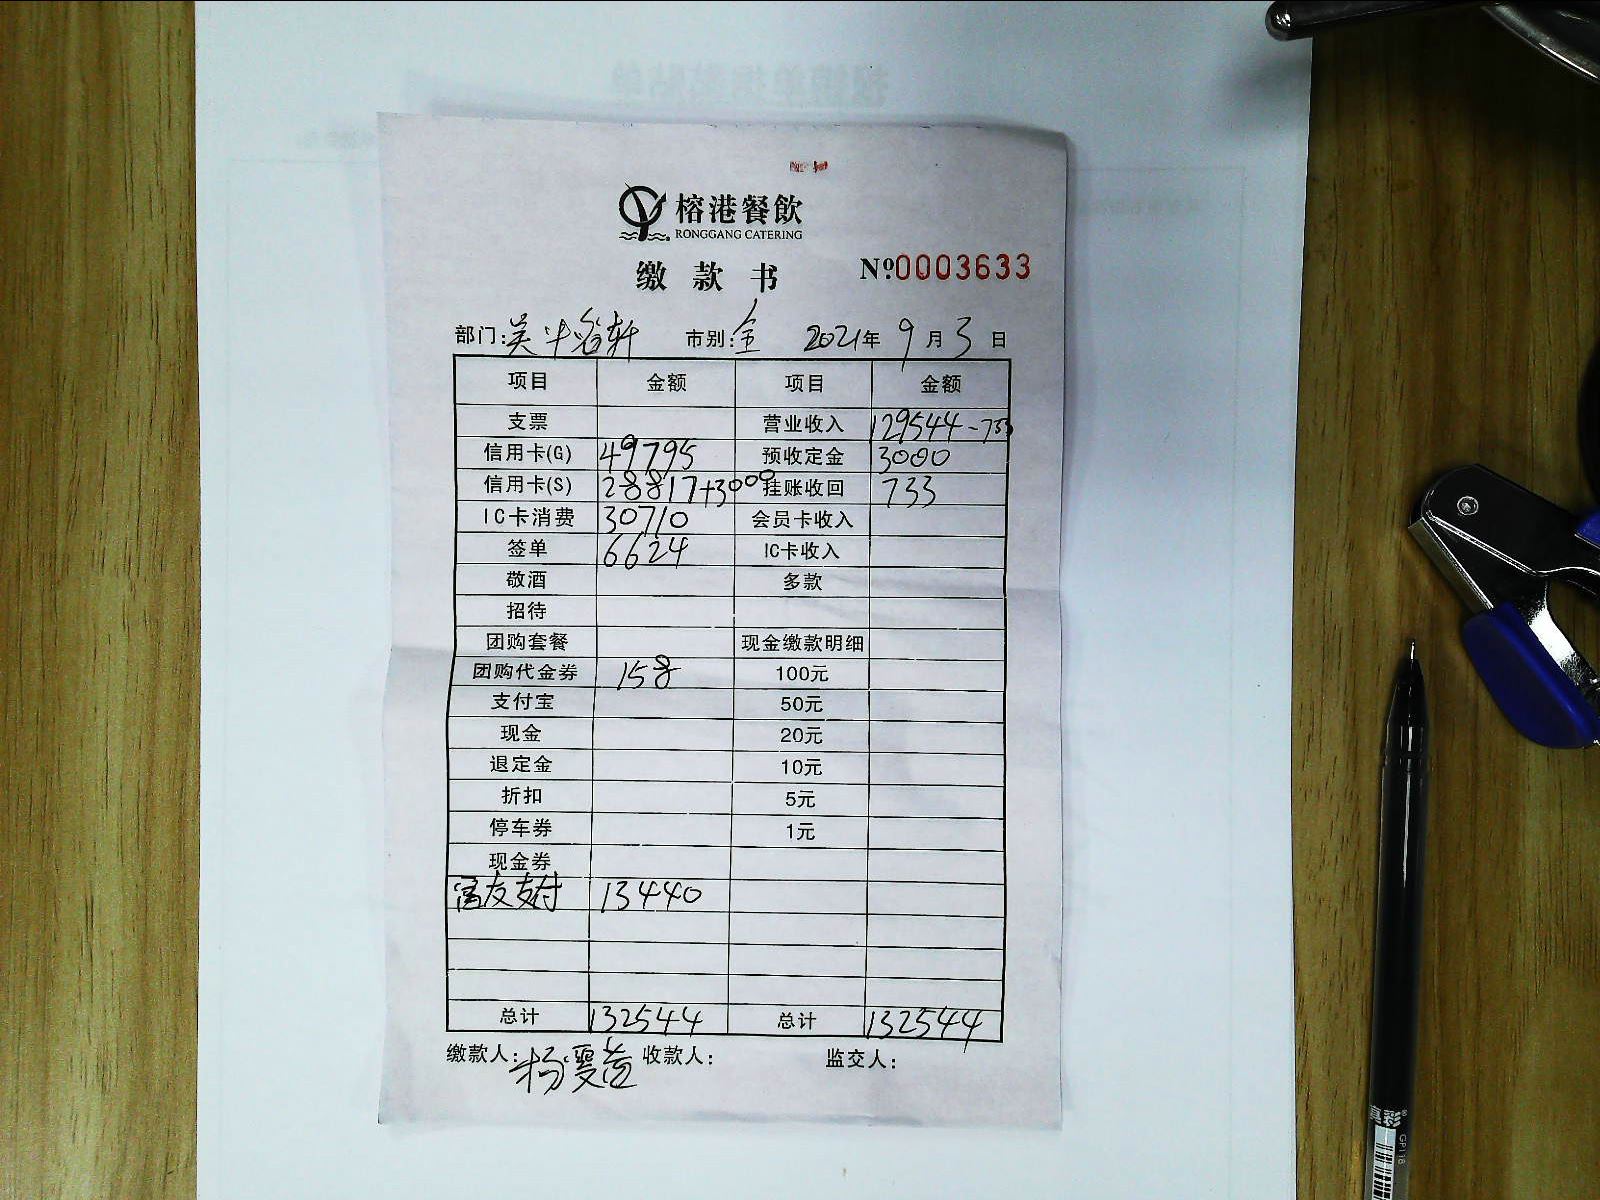 榕港餐飲
RONGGANG CATERING
缴款书 №0003633
部门: 市别:全 2021年9月3日
项目 金额 项目 金额
支票 营业收入 129544-733
信用卡(G) 49795 预收定金 3000
信用卡(S) 28817+3000 挂账收回 733
IC卡消费 30710 会员卡收入
签单 6624 IC卡收入
敬酒 多款
招待
团购套餐 现金缴款明细
团购代金券 158 100元
支付宝 50元
现金 20元
退定金 10元
折扣 5元
停车券 1元
现金券
支付 13440
总计 132544 总计 132544
缴款人: 收款人: 监交人:
GP118